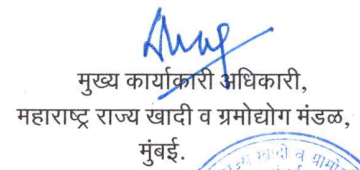 मुख्य कार्याकारी अधिकारी,
महाराष्ट्र राज्य खादी व ग्रमोद्योग मंडळ,
मुंबई.
राज्य खादी व ग्रामो